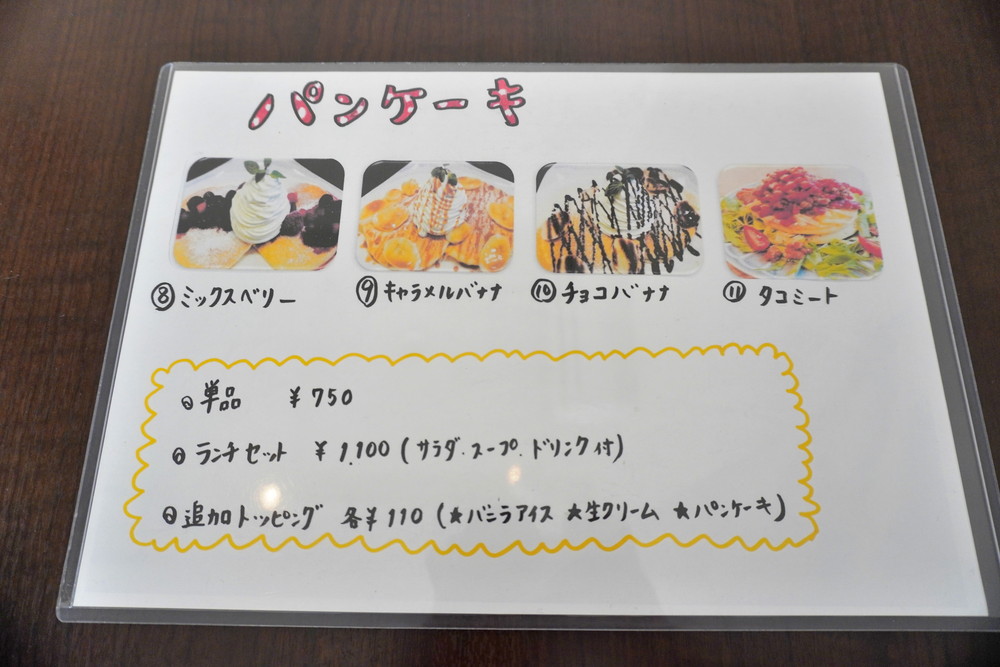 パンケーキ
⑧ミックスベリー ⑨キャラメルバナナ ⑩チョコバナナ ⑪タコミート
単品 ¥750
ランチセット ¥1,100 (サラダ.スープ.ドリンク付)
追加トッピング 各¥110 (★バニラアイス ★生クリーム ★パンケーキ)